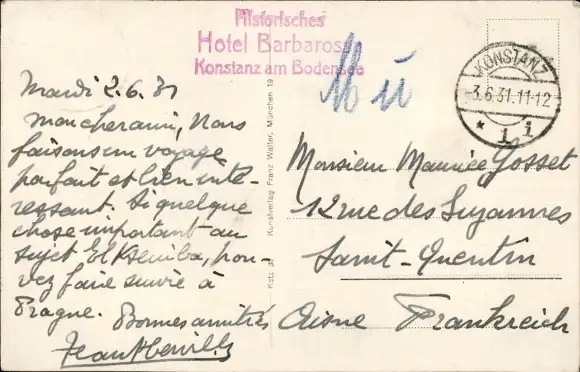 Historisches
Hotel Barbarossa
Konstanz am Bodensee
KONSTANZ
3.6.31.11-12
* 1 i
Mardi 2.6.31
mon cher ami, Nous
faisons un voyage
parfait et bien inté-
ressant. Si quelque
chose important au
sujet El Kseniba, pou-
vez faire suivre à
Prague.
Bonnes amitiés
Kunstverlag Franz Walter, München 19
Monsieur Maurice Gosset
12 rue des Suzannes
Saint-Quentin
Aisne Frankreich